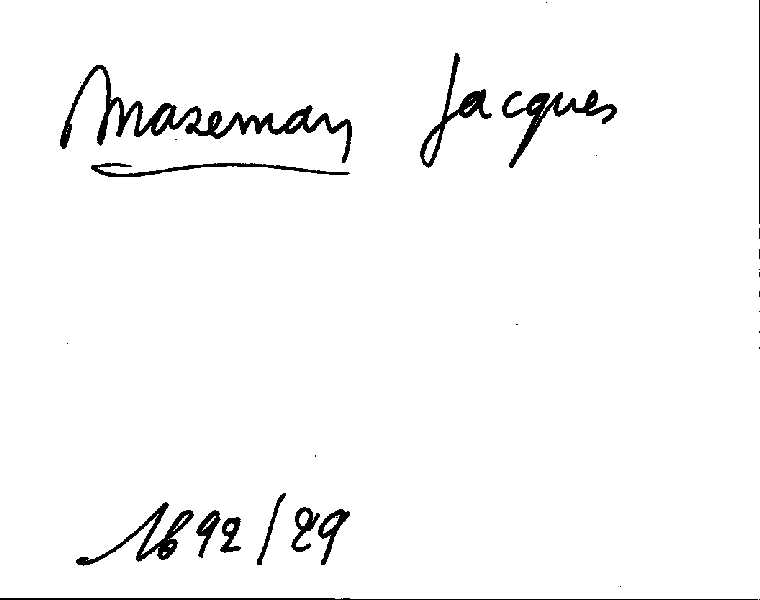 Maseman Jacques
1692/29